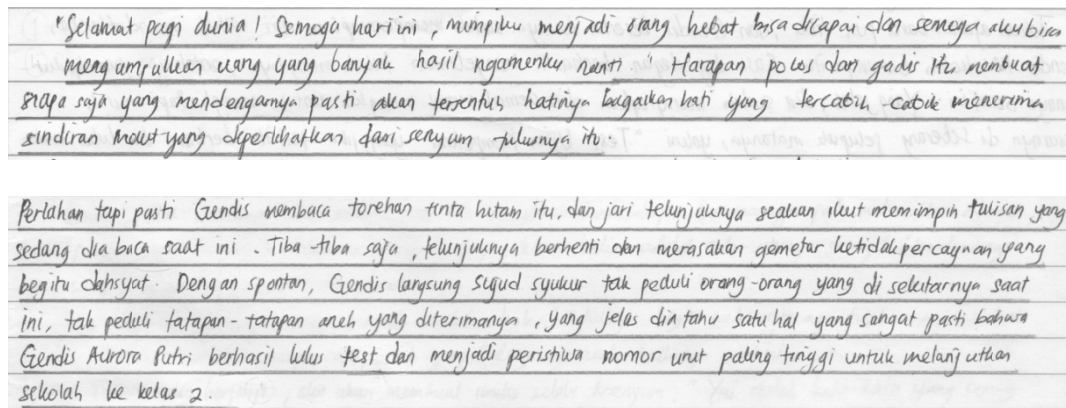 "Selamat pagi dunia! Semoga hari ini, mimpiku menjadi orang hebat bisa dicapai dan semoga aku bisa
mengumpulkan uang yang banyak hasil ngamenku nanti." Harapan polos dari gadis itu membuat
siapa saja yang mendengarnya pasti akan tersentuh hatinya bagaikan hati yang tercabik-cabik menerima
sindiran maut yang diperlihatkan dari senyum tulusnya itu
Perlahan tapi pasti Gendis membaca torehan tinta hitam itu, dan jari telunjuknya seakan ikut memimpin tulisan yang
sedang dia baca saat ini. Tiba-tiba saja, telunjuknya berhenti dan merasakan gemetar ketidakpercayaan yang
begitu dahsyat. Dengan spontan, Gendis langsung sujud syukur tak peduli orang-orang yang di sekitarnya saat
ini, tak peduli tatapan-tatapan aneh yang diterimanya, yang jelas dia tahu satu hal yang sangat pasti bahwa
Gendis Aurora Putri berhasil lulus test dan menjadi peristiwa nomor urut paling tinggi untuk melanjutkan
sekolah ke kelas 2.